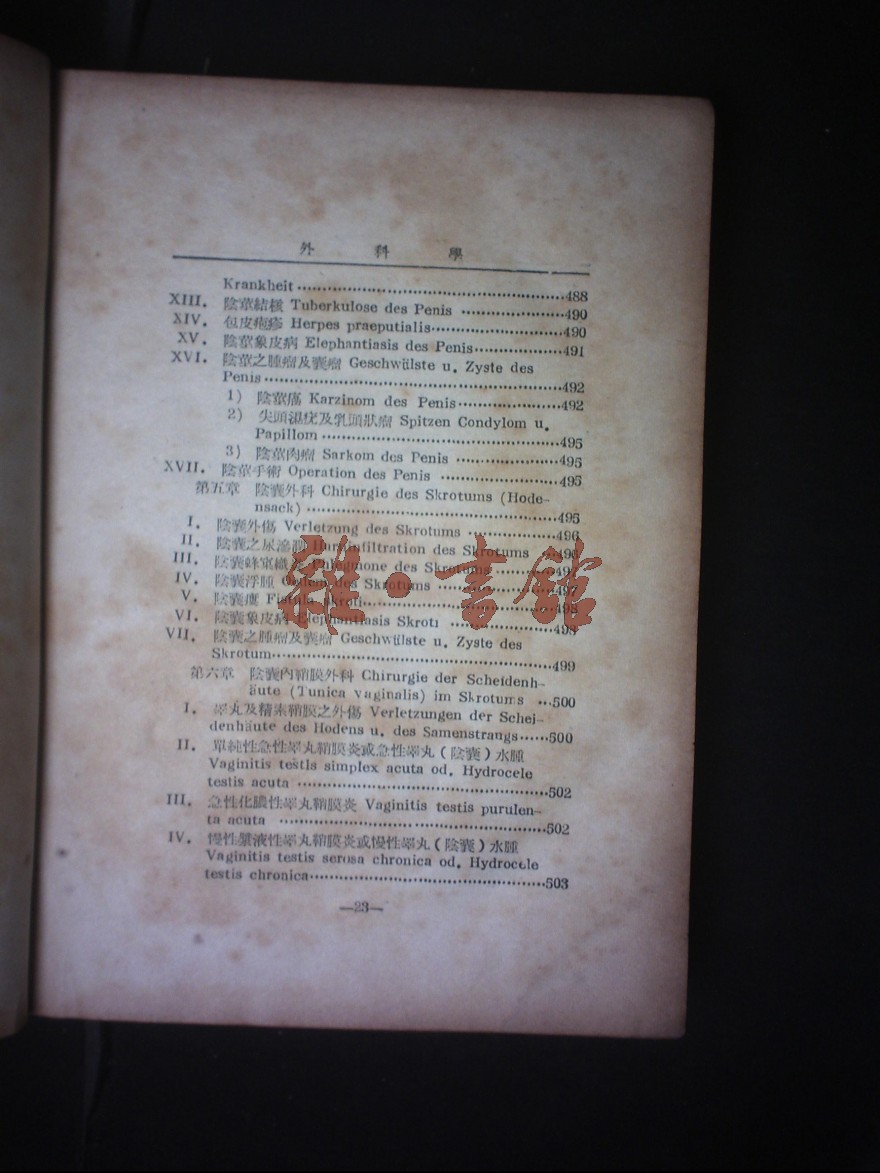 外 科 學
Krankheit ………………………………………488
XIII. 陰莖結核 Tuberkulose des Penis ………………490
XIV. 包皮疱疹 Herpes praeputialis…………………490
XV. 陰莖象皮病 Elephantiasis des Penis……………491
XVI. 陰莖之腫瘤及囊瘤 Geschwülste u. Zyste des
Penis……………………………………………492
1) 陰莖癌 Karzinom des Penis………………492
2) 尖頭濕疣及乳頭狀瘤 Spitzen Condylom u.
Papillom ……………………………………495
3) 陰莖肉瘤 Sarkom des Penis ………………495
XVII. 陰莖手術 Operation des Penis …………………495
第五章 陰囊外科 Chirurgie des Skrotums (Hode-
nsack) ……………………………………495
I. 陰囊外傷 Verletzung des Skrotums ……………496
II. 陰囊之尿滲潤 Harninfiltration des Skrotums …496
III. 陰囊蜂窩織炎 Phlegmone des Skrotums
IV. 陰囊浮腫 des Skrotums ……497
V. 陰囊瘻 Fistula skroti………………498
VI. 陰囊象皮病 Elephantiasis Skroti ………………498
VII. 陰囊之腫瘤及囊瘤 Geschwülste u. Zyste des
Skrotum……………………………………………499
第六章 陰囊內鞘膜外科 Chirurgie der Scheidenh-
äute (Tunica vaginalis) im Skrotums …500
I. 睪丸及精系鞘膜之外傷 Verletzungen der Schei-
denhäute des Hodens u. des Samenstrangs……500
II. 單純性急性睪丸鞘膜炎或急性睪丸(陰囊)水腫
Vaginitis testis simplex acuta od. Hydrocele
testis acuta ………………………………………502
III. 急性化膿性睪丸鞘膜炎 Vaginitis testis purulen-
ta acuta …………………………………………502
IV. 慢性漿液性睪丸鞘膜炎或慢性睪丸(陰囊)水腫
Vaginitis testis serosa chronica od. Hydrocele
testis chronica……………………………………503
—23—
雜·書館